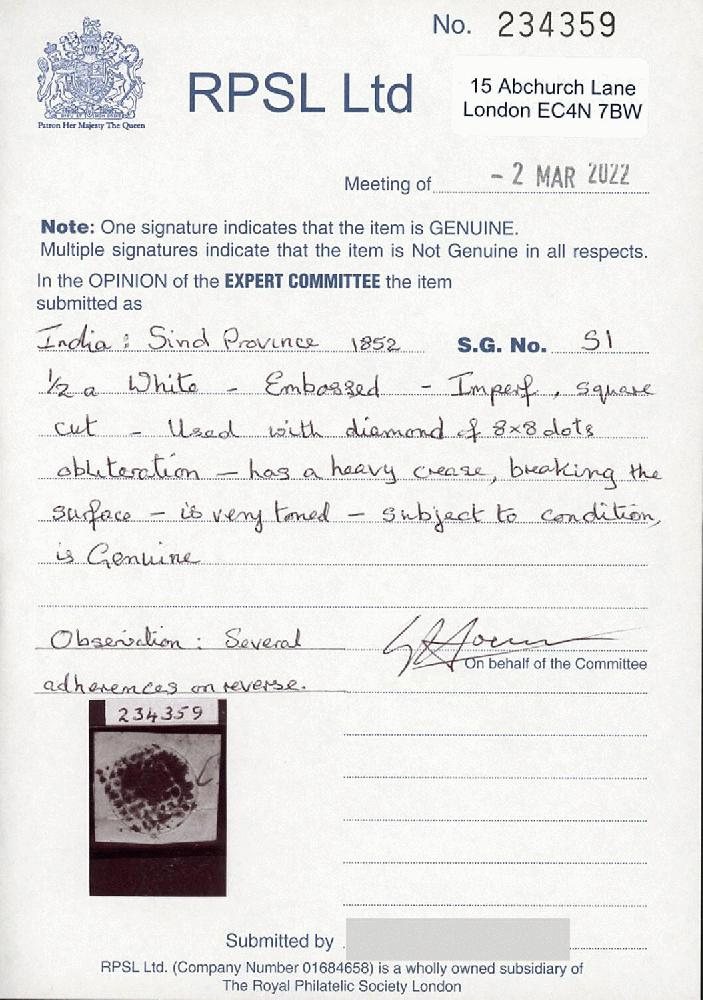 No. 234359
Patron Her Majesty The Queen
RPSL Ltd
15 Abchurch Lane
London EC4N 7BW
Meeting of - 2 MAR 2022
Note: One signature indicates that the item is GENUINE.
Multiple signatures indicate that the item is Not Genuine in all respects.
In the OPINION of the EXPERT COMMITTEE the item
submitted as
India : Sind Province 1852 S.G. No. S1
1/2 a White - Embossed - Imperf, square
cut - Used with diamond of 8x8 dots
obliteration - has a heavy crease, breaking the
surface - is very toned - subject to condition,
is Genuine
Observation : Several
On behalf of the Committee
adherences on reverse.
234359
Submitted by
RPSL Ltd. (Company Number 01684658) is a wholly owned subsidiary of
The Royal Philatelic Society London